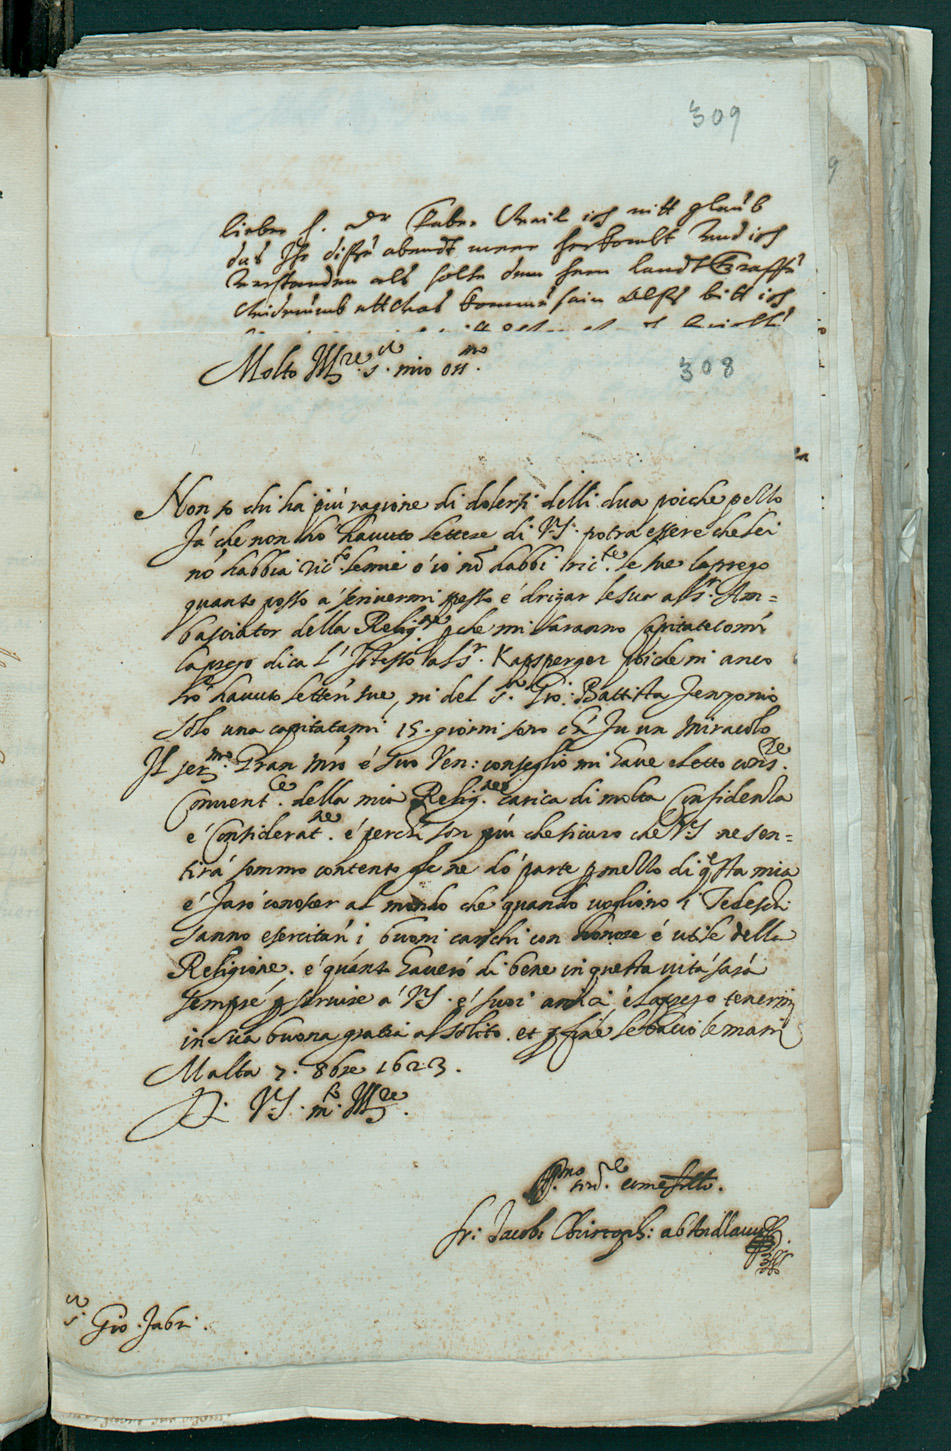 309
lieber h. Dr Faber Weil ich nitt glaub
das Ihr dissen abendt mehr herkombt Und ich
Verstanden als solte dem hern landtgraffen
widerumb ettwas kommen sein Alss bitt ich
Molto Illre sr mio ossmo.
308
Non so chi ha più ragione di dolersi delli dua poiche pesso
fà che non hò hauuto lettere di VS. potra essere che lei
nō habbia ricto le mie ò io nō habbi ricte le sue la prego
quanto posso à scriuermi spesso é drizar le sue al sr Am=
basciator della Religne che mi saranno capitate com'
la prego dica l'istesso al sr. Kapsperger poiche ni anco
hò hauuto letteri sue, ni del sr Gio: Battista Jenzonio
solo una capitatami 15. giorni sono ch'fu un miracolo
Il sermo. Gran Mro é suo Ven: conseglio mi haue eletto
Conuent. della mia Relig.ne carica di molta Confidenza
é Considerat.ne é perche son più che sicuro che VS ne sen=
tirà sommo contento ne dò parte p mezzo di qsta mia
é farò conoscer al mondo che quando uogliono i Tedeschi
sanno esercitar i buoni carichi con honore é utile della
Religione. é quanto hauerò di bene in questa uita sarà
sempre p seruire à VS. é suoi amici é la prego tenermi
in sua buona gratia al solito. et p fine le bacio le mani
Malta 7. 8bre 1623.
D. VS. m.to Illre.
Affmo ser.re
fr: Jacob Christoph: ab Andlauw
sr Gio. Fabri.